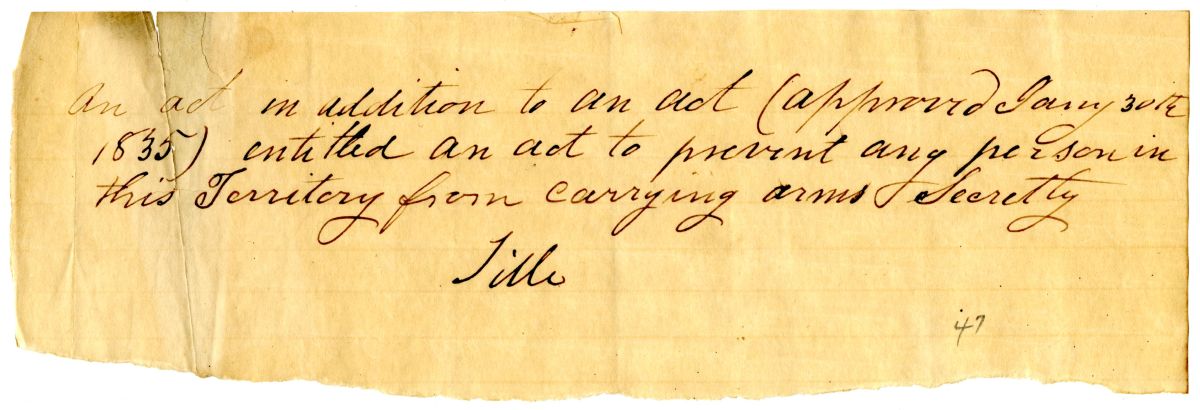 An act in addition to an act (approved Jany 30th
1835) entitled an act to prevent any person in
this Territory from carrying arms Secretly
Title
47